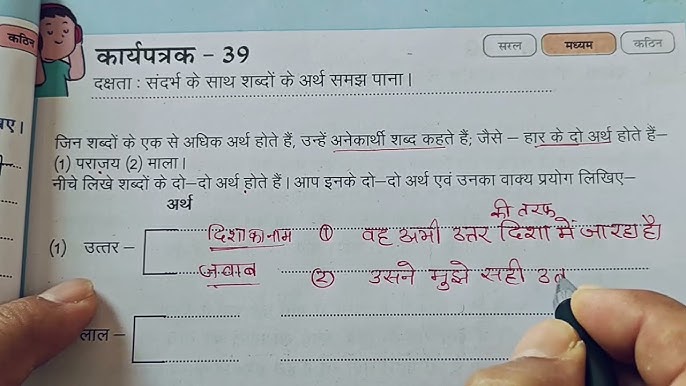 कठिन
कार्यपत्रक - 39
सरल मध्यम कठिन
दक्षता : संदर्भ के साथ शब्दों के अर्थ समझ पाना।
जिन शब्दों के एक से अधिक अर्थ होते हैं, उन्हें अनेकार्थी शब्द कहते हैं; जैसे – हार के दो अर्थ होते हैं–
(1) पराजय (2) माला।
नीचे लिखे शब्दों के दो-दो अर्थ होते हैं। आप इनके दो-दो अर्थ एवं उनका वाक्य प्रयोग लिखिए–
अर्थ
की तरफ
(1) उत्तर – दिशा का नाम ① वह अभी उत्तर दिशा में जा रहा है।
जवाब ② उसने मुझे सही उत
लाल –